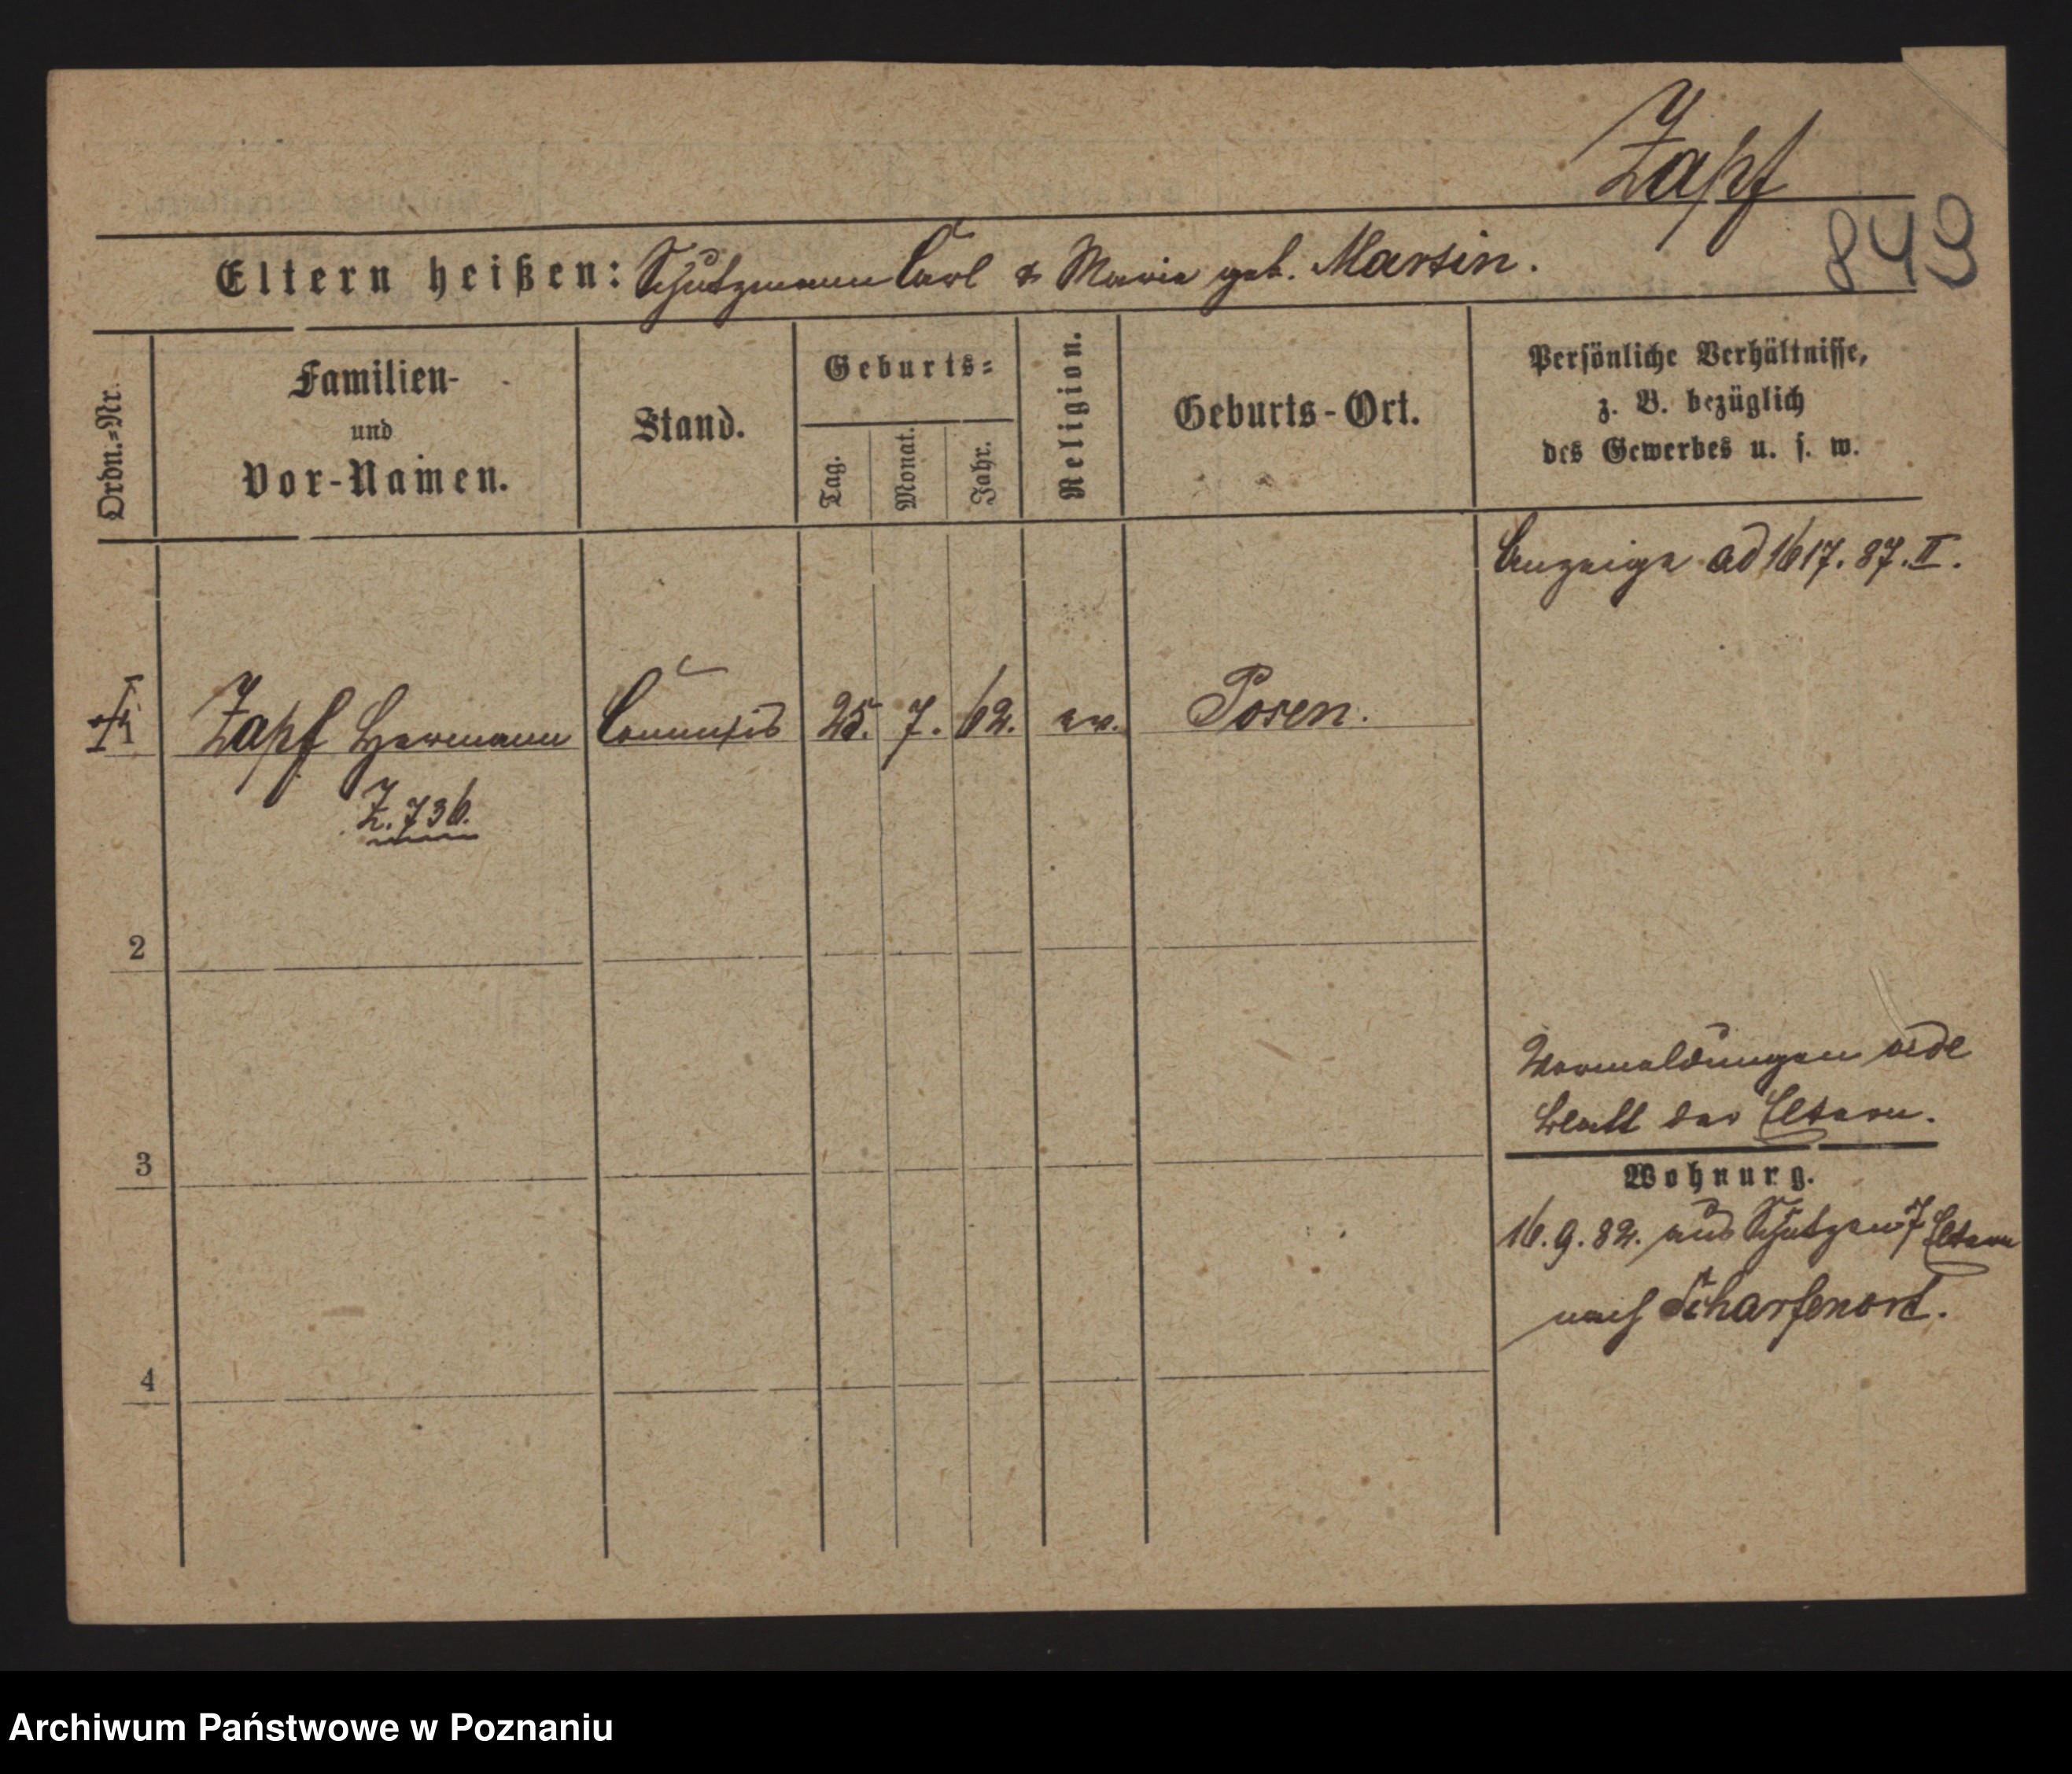 Zapf
849
Eltern heißen: Schutzmann Carl & Maria geb. Martin.
Ordn.=Nr.
Familien-
und
Vor-Namen.
Stand.
Geburts=
Tag.
Monat.
Jahr.
Religion.
Geburts-Ort.
Persönliche Verhältnisse,
z. B. bezüglich
des Gewerbes u. s. w.
Anzeige ad 1617. 87. II.
Zapf Hermann
Commis
25. 7. 62.
ev.
Posen.
Z. 736.
2
3
4
Vormeldungen vide
Blatt der Eltern.
Wohnung.
16. 9. 82. aus Schützen 7 Eltern
nach Scharfenort.
Archiwum Państwowe w Poznaniu